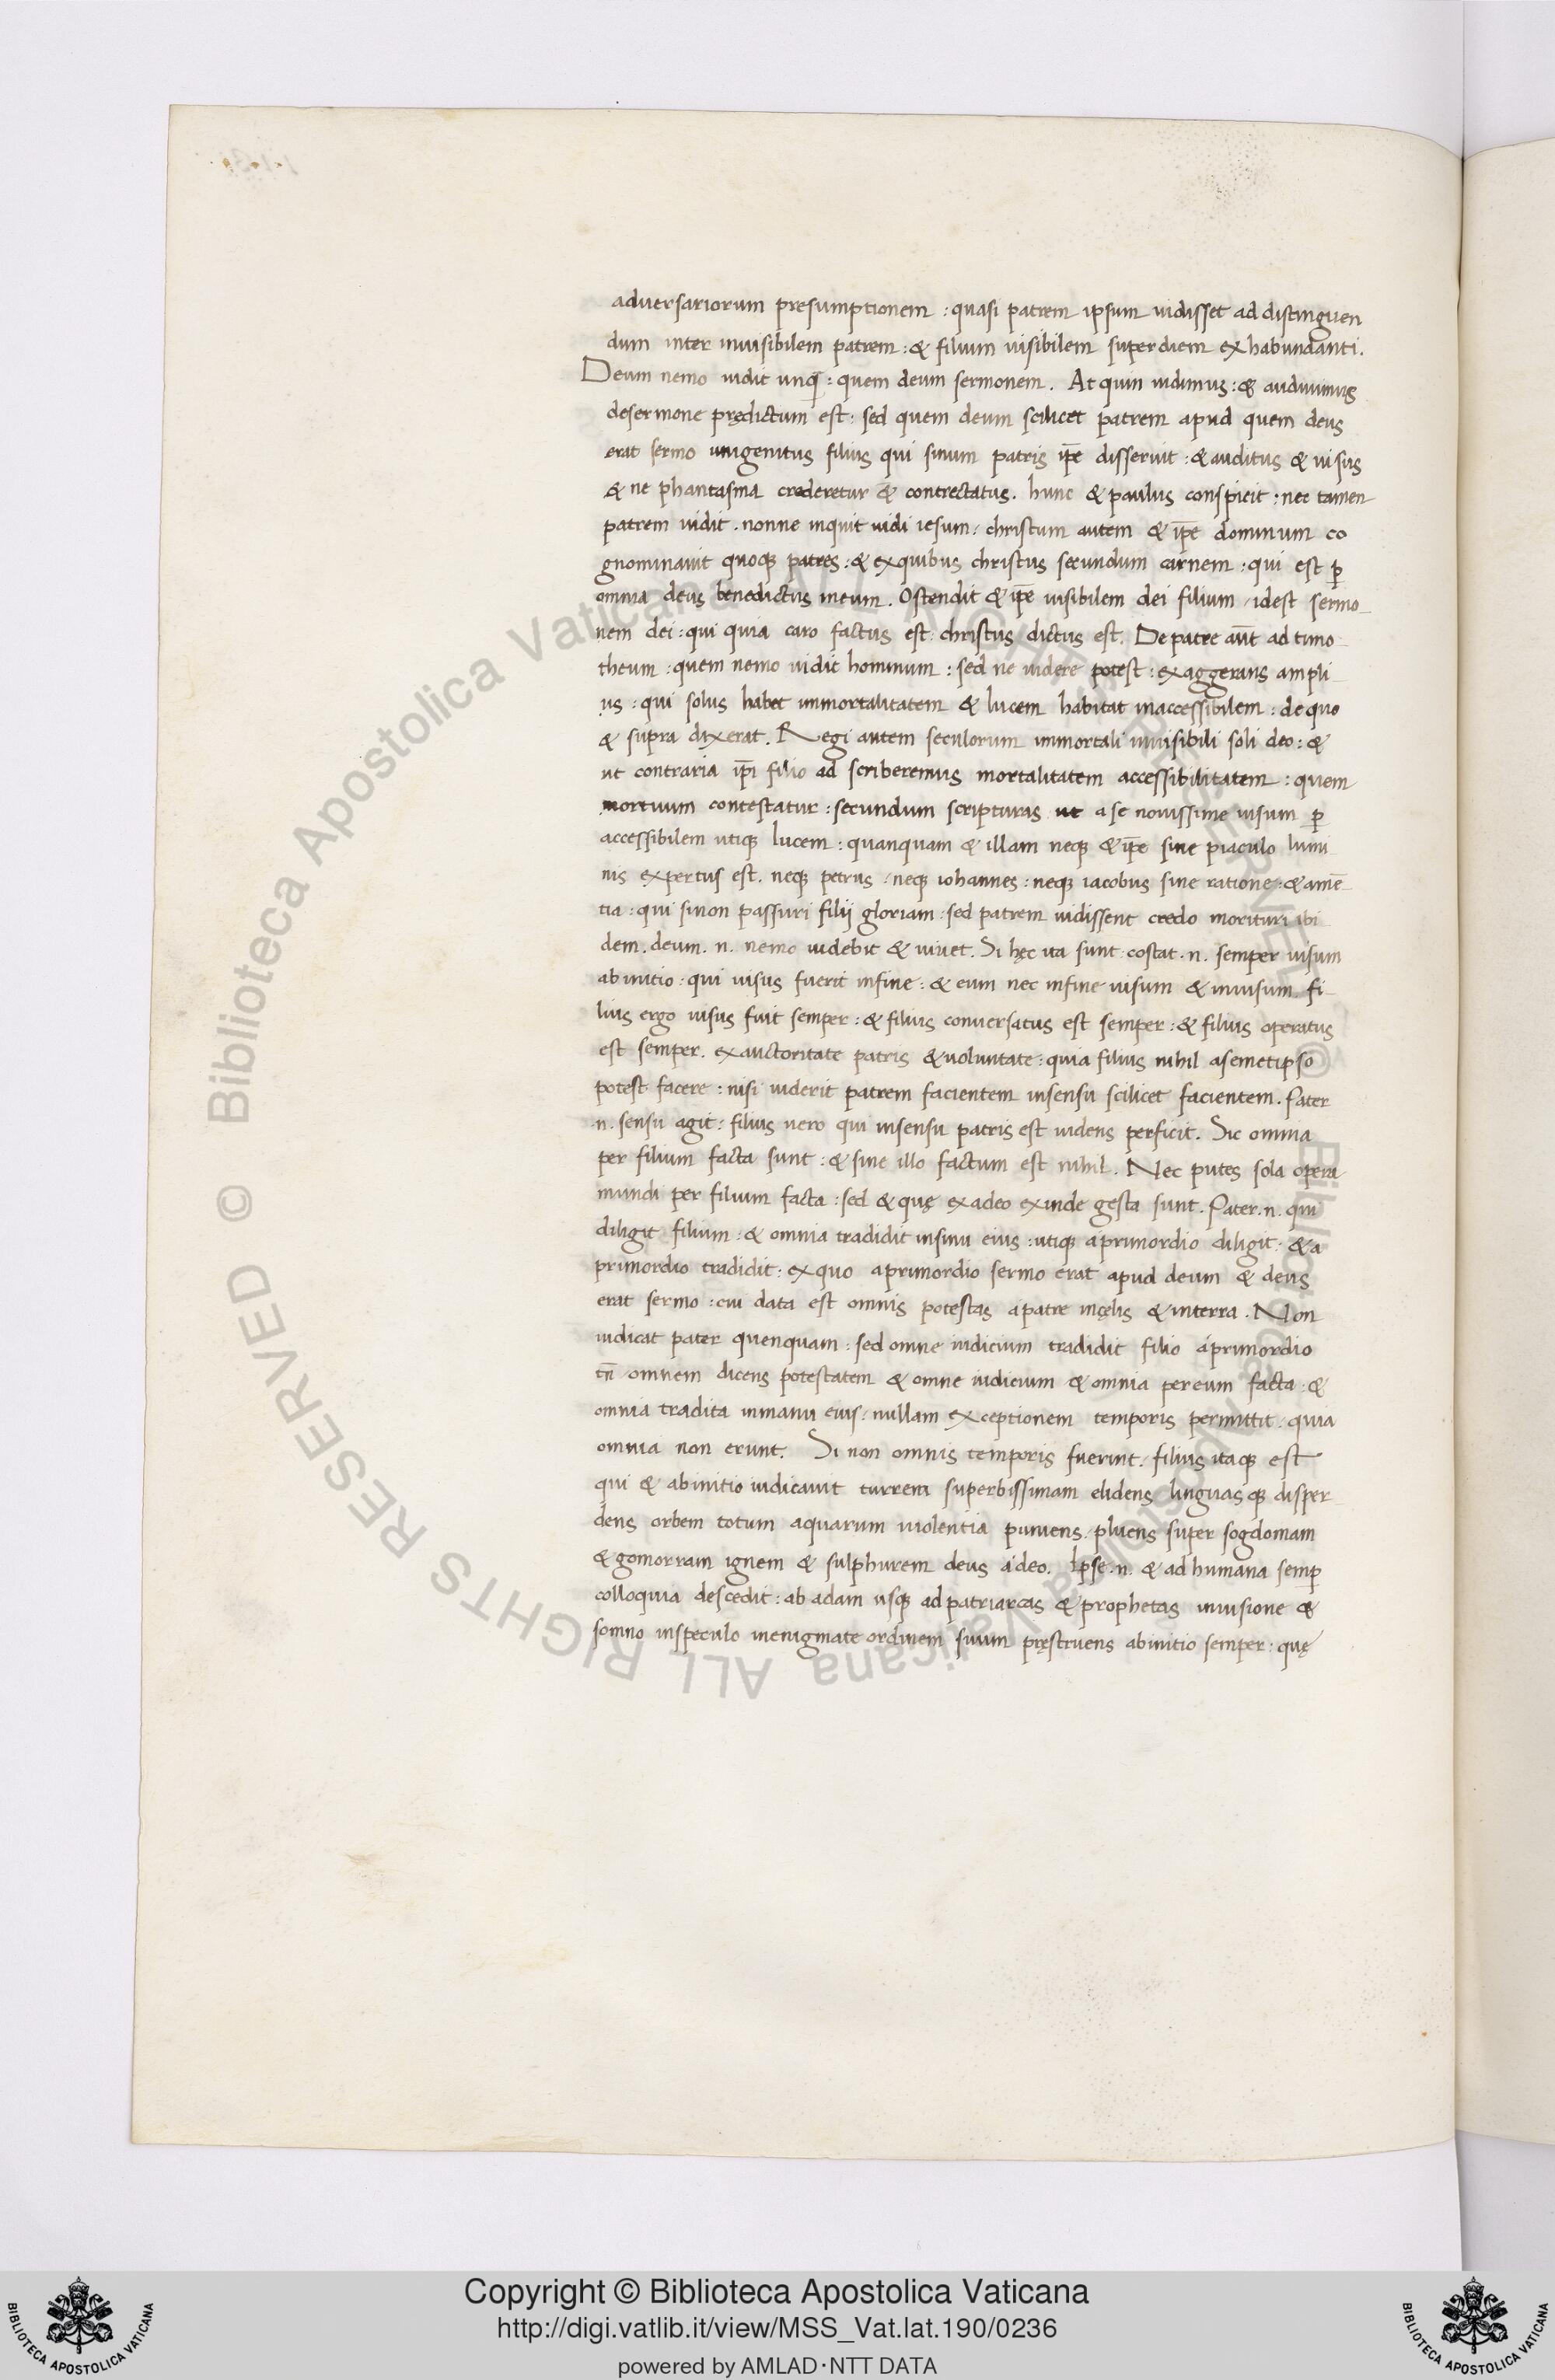 aduersariorum presumptionem : quasi patrem ipsum uidisset ad distinguen
dum inter inuisibilem patrem : & filium uisibilem superdiem exhabundanti.
Deum nemo uidit unq̄ : quem deum sermonem. At quin uidimus : & audiuimus
desermone prędictum est : sed quem deum scilicet patrem apud quem deus
erat sermo unigenitus filius qui sinum patris ip̄e disseruit : & auditus & uisus
& ne phantasma crederetur & contrectatus. hunc & paulus conspicit : nec tamen
patrem uidit . nonne inquit uidi iesum : christum autem & ip̄e dominum co
gnominauit quoqꝫ patres : & exquibus christus secundum carnem : qui est ꝑ
omnia deus benedictus ineum. Ostendit & ip̄e uisibilem dei filium / idest sermo
nem dei : qui quia caro factus est : christus dictus est. De patre aūt ad timo
theum : quem nemo uidit hominum : sed ne uidere potest : exaggerans ampli
us : qui solus habet immortalitatem & lucem habitat inaccessibilem : de quo
& supra dixerat. Regi autem seculorum immortali inuisibili soli deo : &
ut contraria ip̄i filio ad scriberemus mortalitatem accessibilitatem : quem
mortuum contestatur : secundum scripturas ut a se nouissime uisum ꝑ
accessibilem utiqꝫ lucem : quanquam & illam neqꝫ & ip̄e sine piaculo lumi
nis expertus est. neqꝫ petrus / neqꝫ iohannes : neqꝫ iacobus sine ratione : & amē
tia : qui sinon passuri filij gloriam : sed patrem uidissent credo morituri ibi
dem. deum. n. nemo uidebit & uiuet. Si hęc ita sunt : costat . n. semper uisum
abinitio : qui uisus fuerit infine : & eum nec infine uisum & inuisum. fi
lius ergo uisus fuit semper : & filius conuersatus est semper : & filius operatus
est semper. exauctoritate patris & uoluntate : quia filius nihil asemetipso
potest facere : nisi uiderit patrem facientem insensu scilicet facientem. Pater
.n. sensu agit : filius uero qui insensu patris est uidens perficit. Sic omnia
per filium facta sunt : & sine illo factum est nihil. Nec putes sola opera
mundi per filium facta : sed & quę exadeo exinde gesta sunt. Pater .n. qui
diligit filium : & omnia tradidit insinu eius : utiqꝫ aprimordio diligit : & a
primordio tradidit : exquo aprimordio sermo erat apud deum & deus
erat sermo : cui data est omnis potestas apatre incęlis & interra. Non
iudicat pater quenquam : sed omne iudicium tradidit filio aprimordio
tn̄ omnem dicens potestatem & omne iudicium & omnia pereum facta : &
omnia tradita inmanu eius : nullam exceptionem temporis permittit : quia
omnia non erunt. Si non omnis temporis fuerint. filius itaqꝫ est
qui & abinitio iudicauit turrem superbissimam elidens linguasqꝫ disper
dens orbem totum aquarum uiolentia puniens. pluens super sogdomam
& gomorram ignem & sulphurem deus ádeo. Ipse .n. & ad humana semꝑ
colloquia descedit : ab adam usqꝫ ad patriarcas & prophetas inuisione &
somno inspeculo inenigmate ordinem suum pręstruens abinitio semper : quę
Copyright © Biblioteca Apostolica Vaticana
http://digi.vatlib.it/view/MSS_Vat.lat.190/0236
powered by AMLAD·NTT DATA
BIBLIOTECA APOSTOLICA VATICANA
BIBLIOTECA APOSTOLICA VATICANA
© Biblioteca Apostolica Vaticana ALL RIGHTS RESERVED © Biblioteca Apostolica Vaticana ALL RIGHTS RESERVED